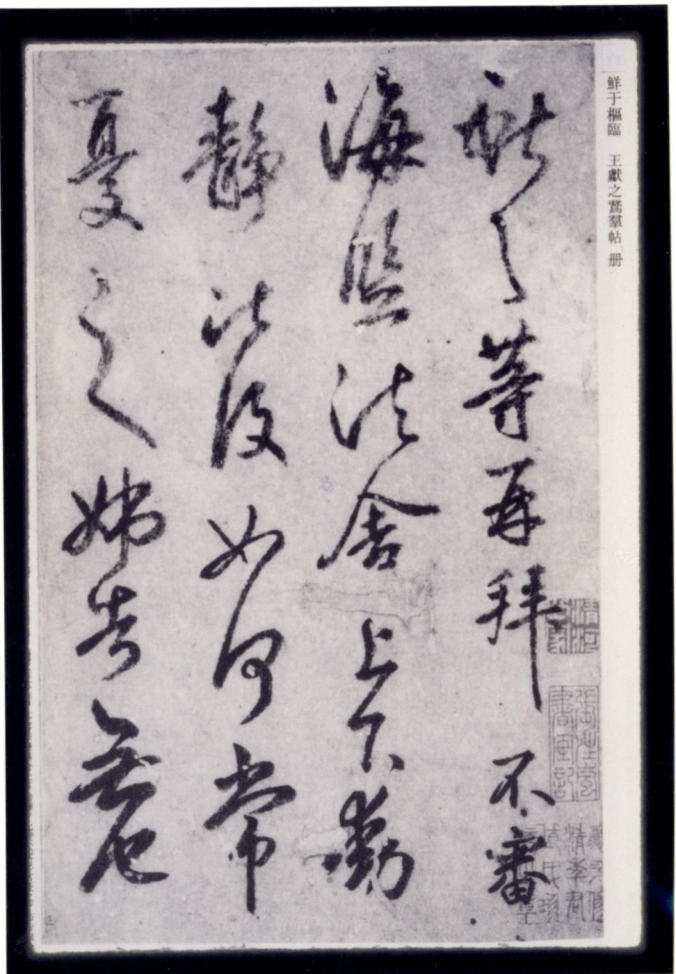 鮮于樞臨　王獻之鵞羣帖　册
獻之等再拜不審
海鹽諸舍上下動
靜比復如何常
憂之姊告無他